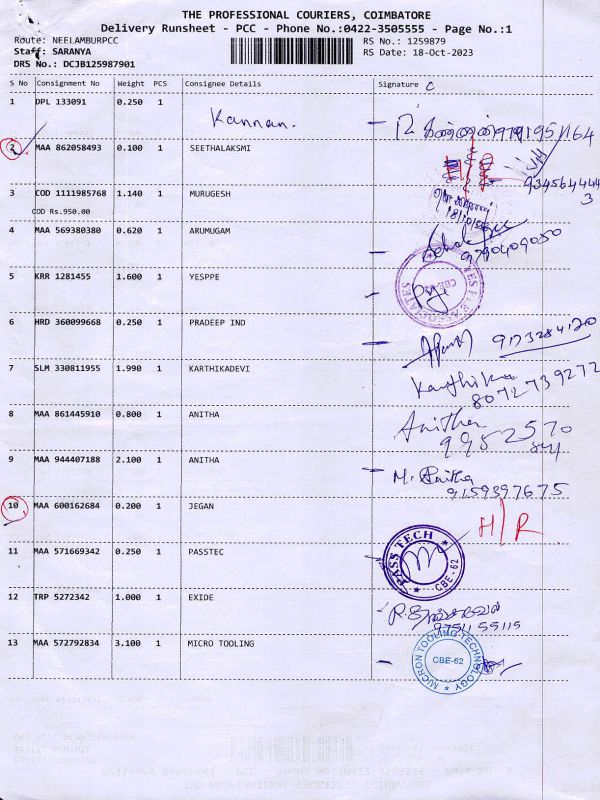 THE PROFESSIONAL COURIERS, COIMBATORE
Delivery Runsheet - PCC - Phone No.:0422-3505555 - Page No.:1
Route: NEELAMBURPCC RS No.: 1259879
Staff: SARANYA RS Date: 18-Oct-2023
DRS No.: DCJB125987901
S No Consignment No Weight PCS Consignee Details Signature
1 DPL 133091 0.250 1 Kannan.
2 MAA 862058493 0.100 1 SEETHALAKSMI
3 COD 1111985768 1.140 1 MURUGESH
COD Rs.950.00
4 MAA 569380380 0.620 1 ARUMUGAM 9790409050
5 KRR 1281455 1.600 1 YESPPE
6 HRD 360099668 0.250 1 PRADEEP IND
7 SLM 330811955 1.990 1 KARTHIKADEVI Karthika
8072739272
8 MAA 861445910 0.800 1 ANITHA Anitha
9 MAA 944407188 2.100 1 ANITHA M. Anitha
9159397675
10 MAA 600162684 0.200 1 JEGAN H/R
11 MAA 571669342 0.250 1 PASSTEC PASS TECH CBE-62
12 TRP 5272342 1.000 1 EXIDE
9751155115
13 MAA 572792834 3.100 1 MICRO TOOLING MICRON TOOLING TECHNOLOGY CBE-62